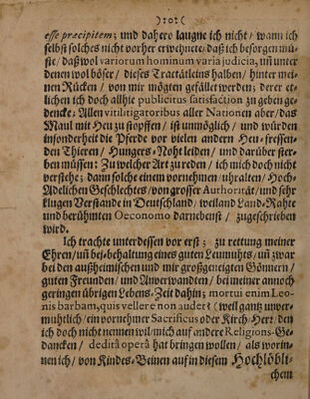 ):o:(
esse præcipitem; und dahero laugne ich nicht/ wann ich
selbst solches nicht vorher erwehnete/ daß ich besorgen mü-
ste/ daß wol variorum hominum varia judicia, uñ unter
denen wol böser/ dieses Tractätleins halben/ hinter mei-
nen Rücken/ von mir mögten gefället werden; derer et-
lichen ich doch allhie publicitus satisfaction zu geben ge-
dencke: Allen vitilitigatoribus aller Nationen aber/ das
Maul mit Heu zu stopffen/ ist unmöglich/ und würden
insonderheit die Pferde vor vielen andern Heu-fressen-
den Thieren/ Hungers-Noht leiden/ und darüber ster-
ben müssen: Zu welcher Art zu reden/ ich mich doch nicht
verstehe; dann solche einem vornehmen/ uhralten/ Hoch-
Adelichen Geschlechtes/ von grosser Authorität/ und sehr
klugen Verstande in Deutschland/ weiland Land-Rahte
und berühmten Oeconomo darnebenst/ zugeschrieben
wird.
Ich trachte unterdessen vor erst; zu rettung meiner
Ehren/ uñ bey-behaltung eines guten Leumuhts/ uñ zwar
bei den außheimischen und mir großgeneigten Gönnern/
guten Freunden/ und Anverwandten/ bei meiner annoch
geringen übrigen Lebens-Zeit dahin; mortui enim Leo-
nis barbam, quis vellere non audet (weil gantz unver-
muhtlich/ ein vornehmer Sacrificus oder Kirch-Herr/ den
ich doch nicht nennen wil/ mich auf andere Religions-Ge-
dancken/ deditâ operâ hat bringen wollen/ als worin-
nen ich/ von Kindes-Beinen auf in diesem Hochlöbli-
chem